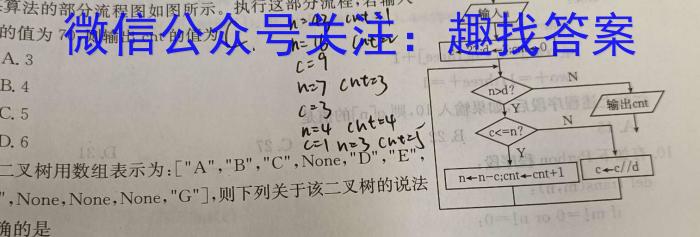 算法的部分流程图如图所示。执行这部分流程,若输入
的值为
微信公众号关注：趣找答案
A. 3
B. 4
C. 5
D. 6
c=9
n=7 cnt=3
c=3
n=4 cnt=4
c=1 n=3 cnt=5
输入
n>d?
N
Y
输出cnt
c<=n?
N
Y
n←n-c;cnt←cnt+1
c←c//d
二叉树用数组表示为:["A","B","C",None,"D","E",
",None,None,None,"G"],则下列关于该二叉树的说法
确的是